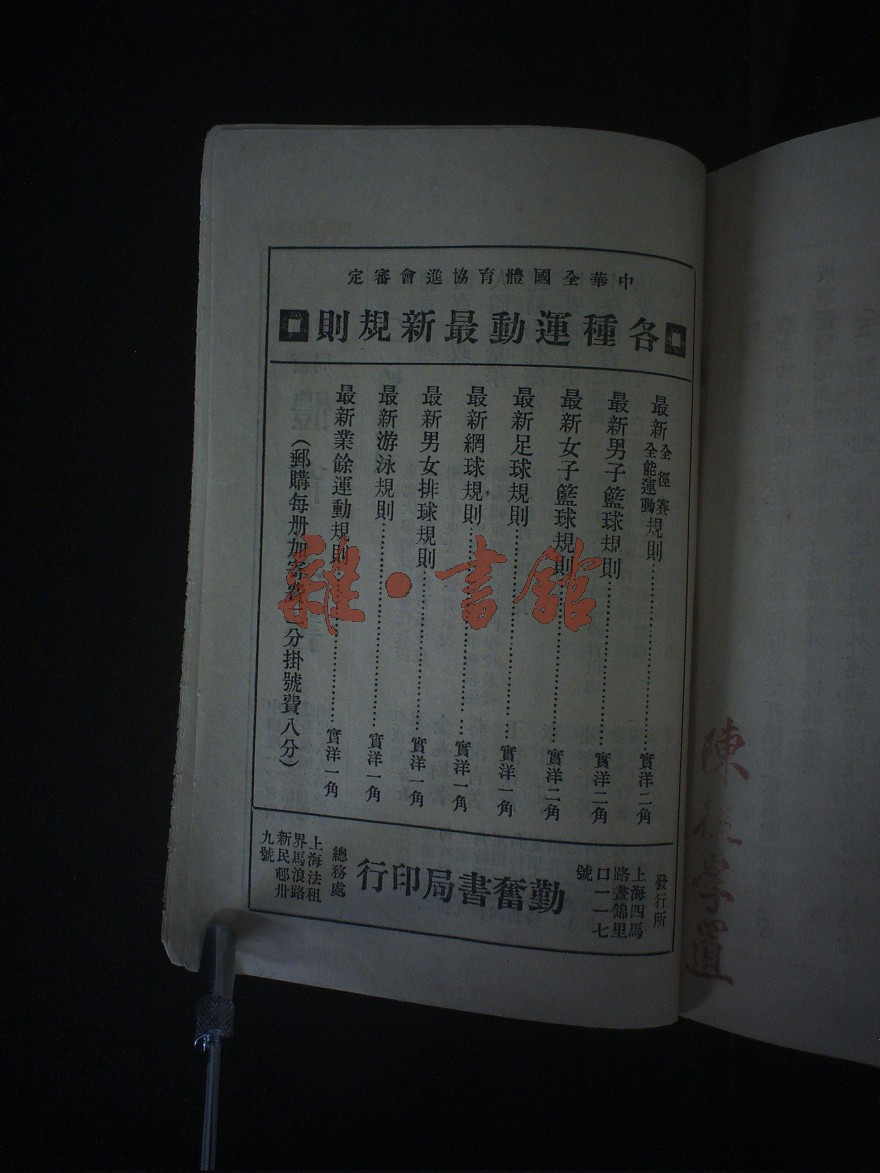 中華全國體育協進會審定
各種運動最新規則
最新全能運動徑賽規則……實洋二角
最新男子籃球規則……實洋二角
最新女子籃球規則……實洋二角
最新足球規則……實洋一角
最新網球規則……實洋一角
最新男女排球規則……實洋一角
最新游泳規則……實洋一角
最新業餘運動規則……實洋一角
(郵購每册加寄費 分掛號費八分)
發行所
上海四馬
路晝錦里
口一一七
號
勤奮書局印行
總務處
上海法租
界馬浪路
新民邨卅
九號
雜·書館
陳 置